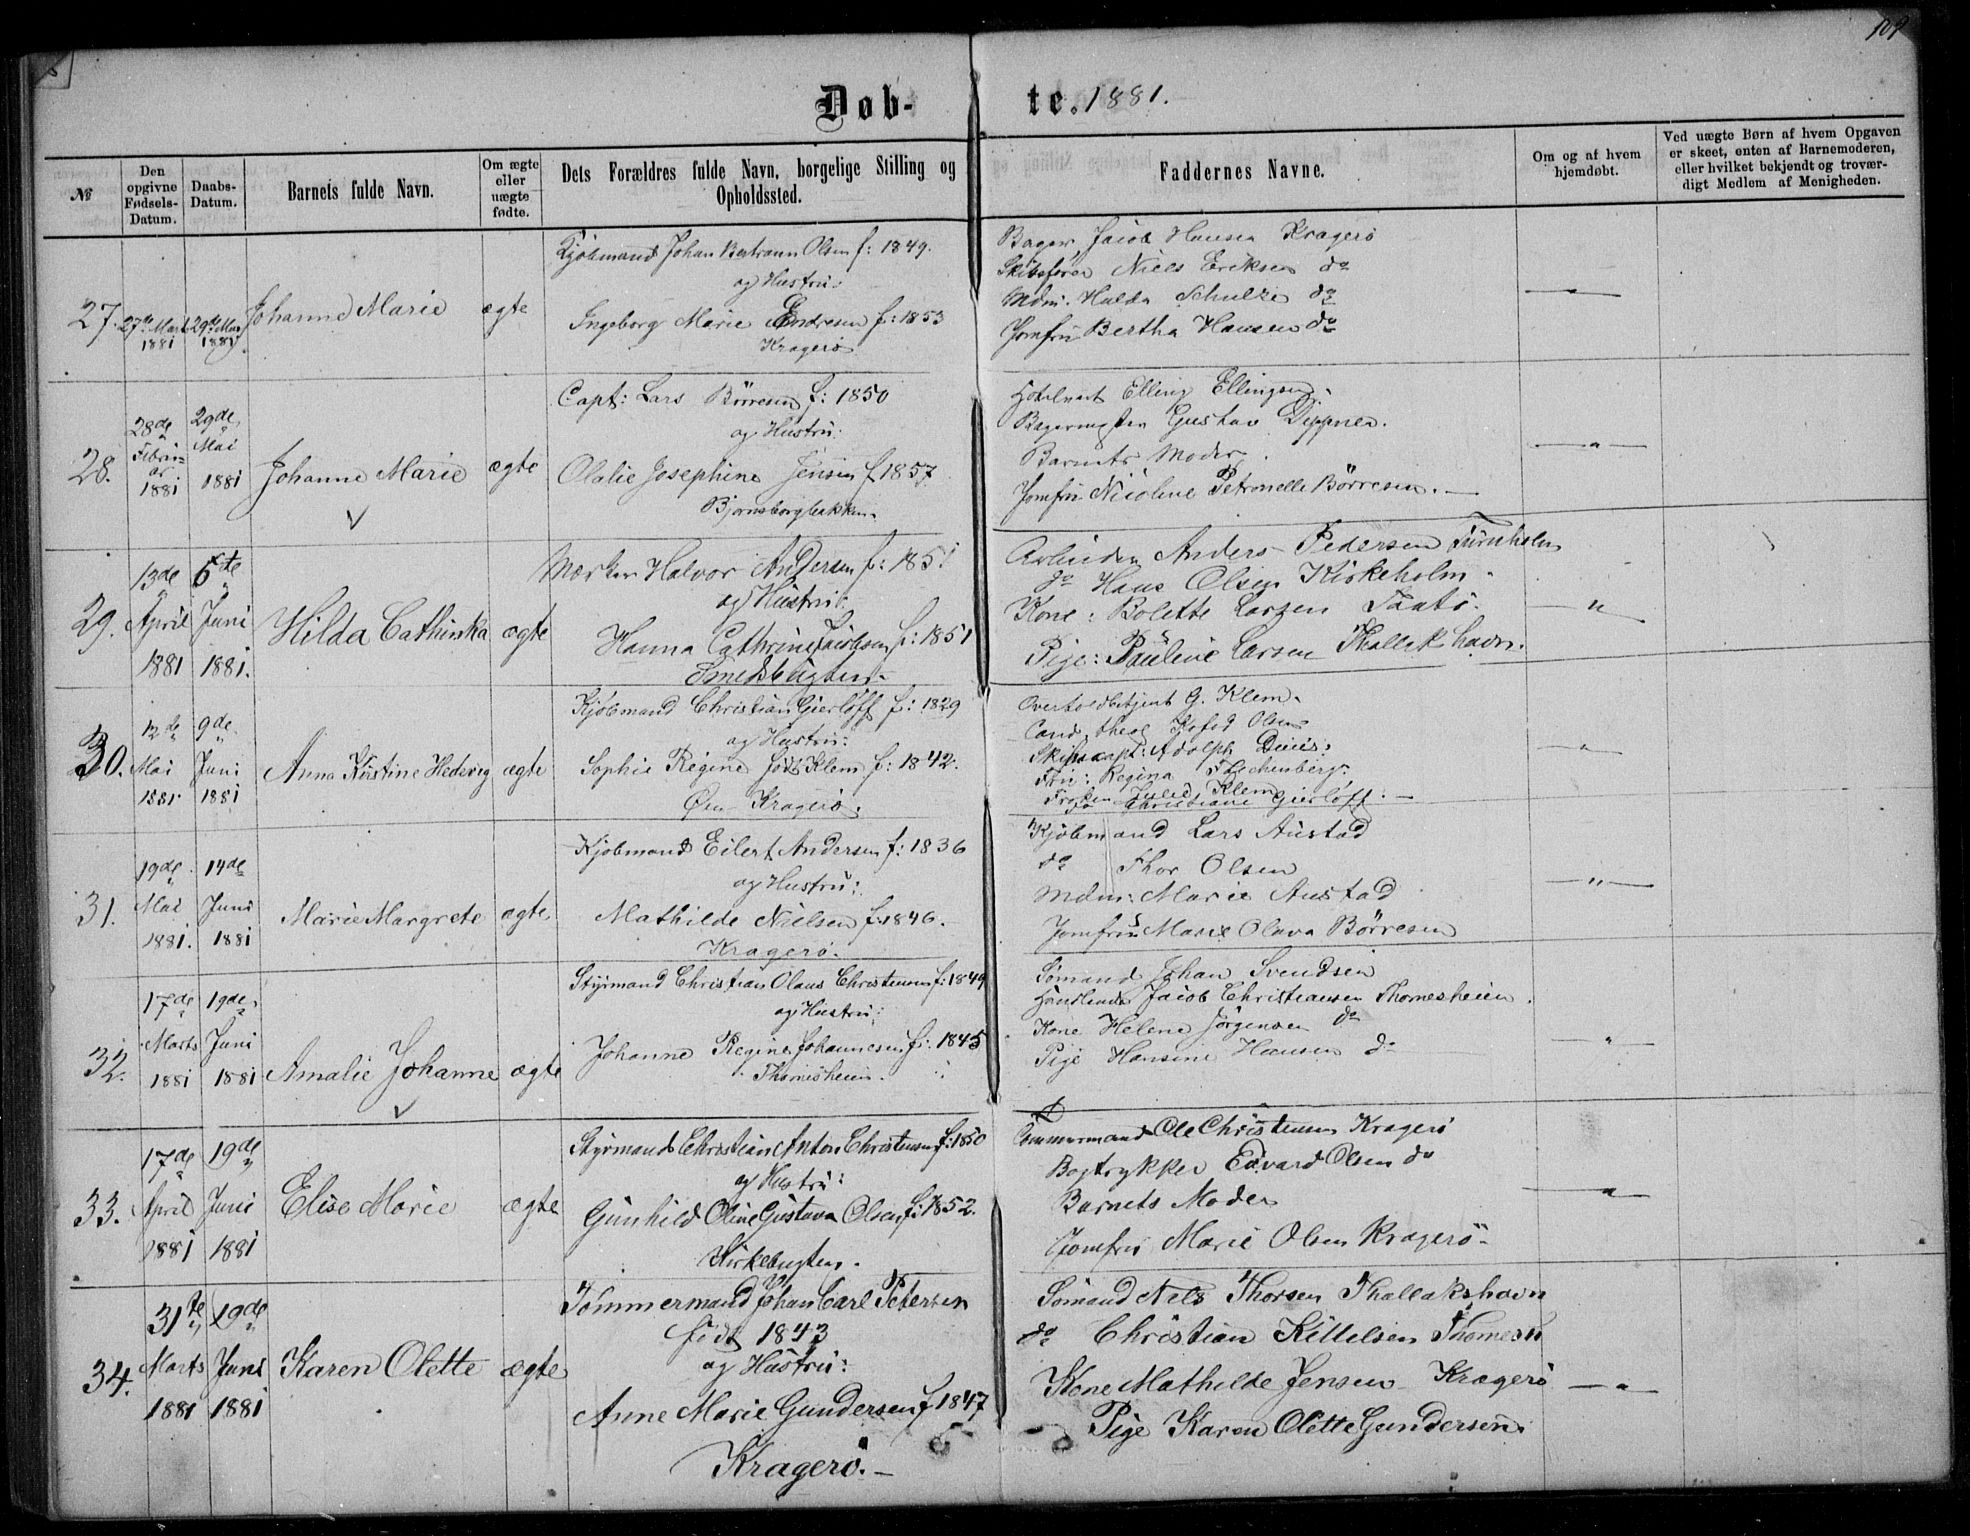 109
Døb-te. 1881.
№
Den opgivne Fødsels-Datum.
Daabs-Datum.
Barnets fulde Navn.
Om ægte eller uægte fødte.
Dets Forældres fulde Navn, borgelige Stilling og Opholdssted.
Faddernes Navne.
Om og af hvem hjemdøbt.
Ved uægte Børn af hvem Opgaven er skeet, enten af Barnemoderen, eller hvilket bekjendt og troværdigt Medlem af Menigheden.
27.
27de Marts 1881
29de Mai 1881
Johanne Marie
ægte
Kjöbmand Johan Bertrann Olsen f: 1849.
og Hustru:
Ingeborg Marie Endresen f: 1853
Kragerö
Bager Jacob Hansen Kragerö
Skibsförer Niels Eriksen do
Mdm. Hulda Schulze do
Jomfru Bertha Hansen do
— " —
28.
28de Februar 1881
29de Mai 1881
Johanne Marie
ægte
Capt: Lars Börresen f: 1850
og Hustru:
Olalie Josephine Jensen f 1857
Bjornsborgbakken.
Hotelvert Elling Ellingsen.
Bagermester Gustav Deppner.
Barnets Moder.
Jomfru Nicoline Petronelle Börresen. —
— " —
29.
13de April 1881
6te Juni 1881.
Hilda Cathinka
ægte
Mærker Halvor Andersen f: 1851
og Hustru:
Hanna Cathrine Jacobsen f: 1851
Smedsbugten.
Arbeider Anders Pedersen Furuholm
do Hans Olsen Kirkeholm.
Kone: Bolette Larsen Taatö.
Pige: Pauline Larsen Thallakshavn.
— " —
30.
12de Mai 1881
9de Juni 1881
Anna Kirstine Hedevig
ægte
Kjöbmand Christian Gierlöff f: 1829
og Hustru:
Sophie Regine Klem f: 1842.
Öen Kragerö.
Overtoldbetjent G. Klem.
Cand. theol Kofod Olsen
Skibscapt: Adolph
Fru: Regina
Frøken Julie Klem
do Christiane Gierlöff. —
— " —
31.
19de Mai 1881.
14de Juni 1881
Marie Margrete
ægte
Kjöbmand Eilert Andersen f: 1836
og Hustru:
Mathilde Nielsen f: 1846.
Kragerö.
Kjöbmand Lars Austad
do Thor Olsen
Mdm: Marie Austad
Jomfru Marie Olava Börresen
— " —
32.
17de Marts 1881
19de Juni 1881
Amalie Johanne
ægte
Styrmand Christian Olaus Christensen f: 1849
og Hustru:
Johanne Regine Johannesen f: 1845
Thomesheien.
Sömand Johan Svendsen
Handlende Jacob Christiansen Thomesheien.
Kone Helene Jörgensen do
Pige Hansine Hansen do
— " —
33.
17de April 1881
19de Juni 1881
Elise Marie
ægte
Styrmand Christian Anton Christensen f: 1850
og Hustru:
Gunhild Oline Gustava Olsen f: 1852.
Kirkebugten.
Tömmermand Ole Christensen Kragerö
Bogtrykker Edvard Olsen do
Barnets Moder
Jomfru Marie Olsen Kragerö
— " —
34.
31te Marts 1881
19de Juni 1881
Karen Olette
ægte
Tömmermand Johan Carl Petersen
födt 1843
og Hustru:
Anne Marie Gundersen f 1847
Kragerö. —
Sömand Nels Thorsen Thallakshavn
do Christian Kittelsen Thomesh
Kone Mathilde Jensen Kragerö
Pige Karen Olette Gundersen.
— " —